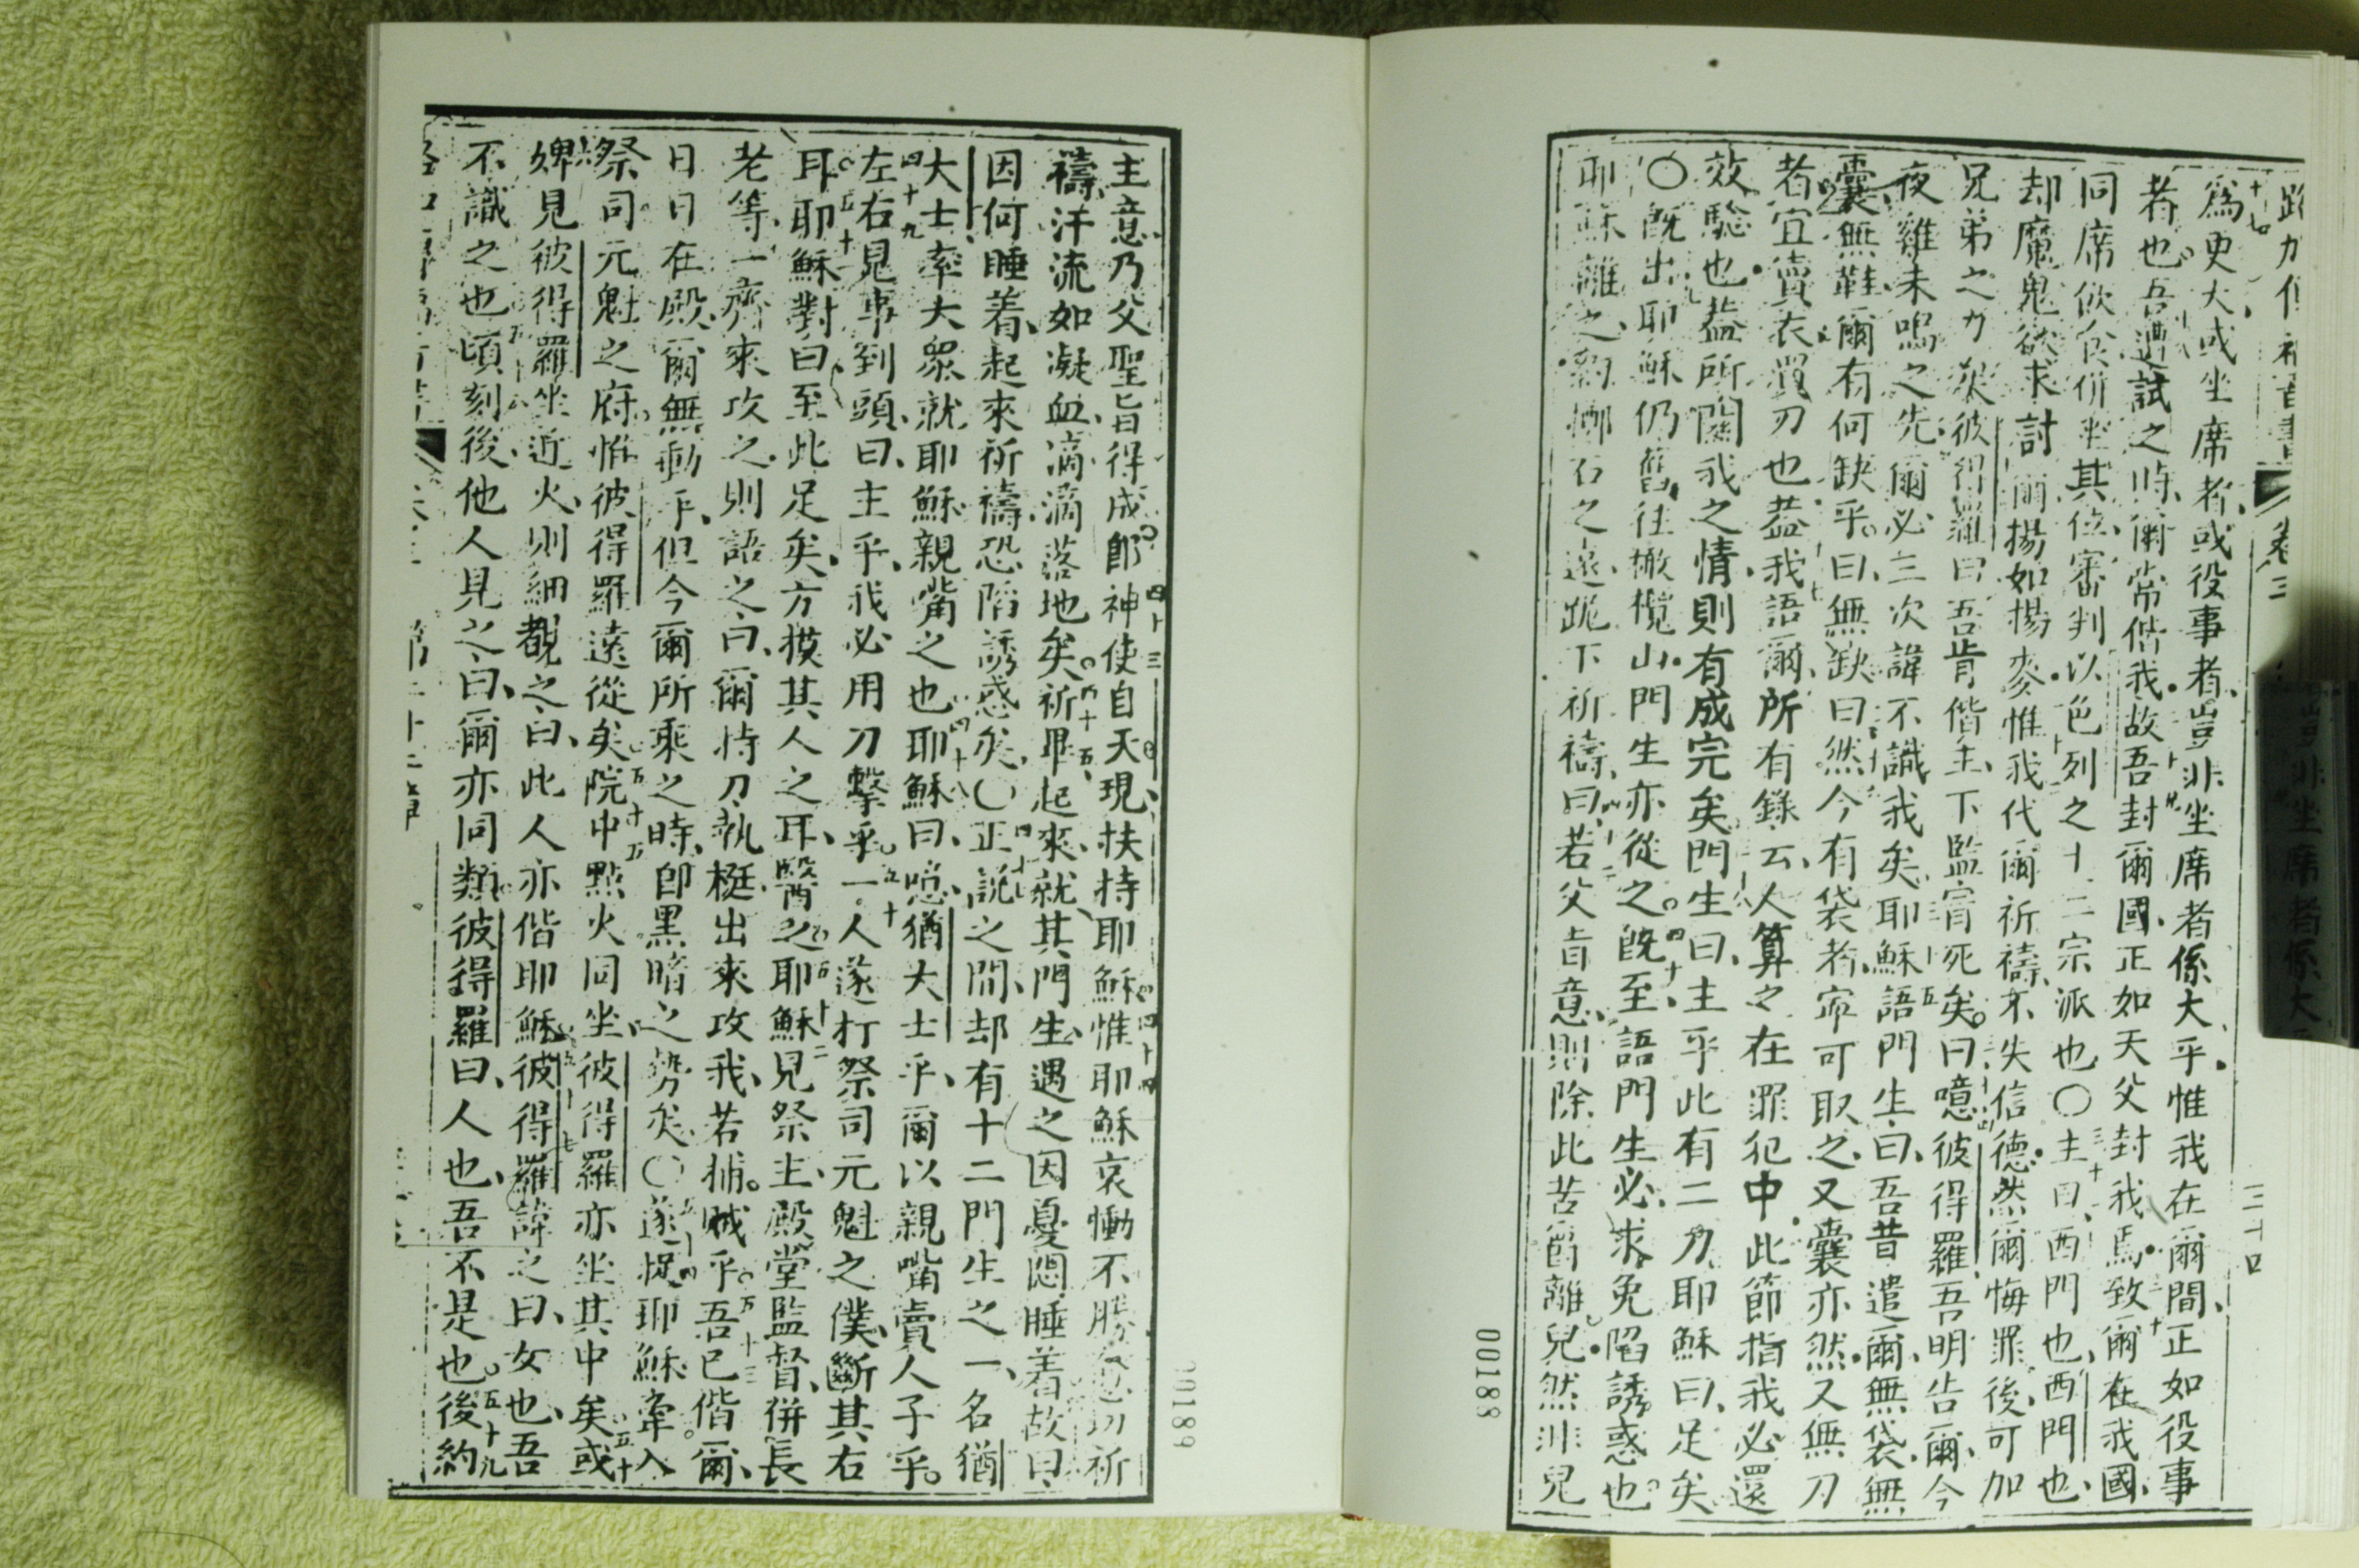 路加傳福音書 卷三
為更大或坐席者或役事者豈非坐席者係大乎惟我在爾間正如役事
者也吾遭試之時爾常偕我故吾封爾國正如天父封我焉致爾在我國
同席飲食併坐其位審判以色列之十二宗派也〇主曰西門也西門也
却魔鬼欲求討爾揚如揚麥惟我代爾祈禱不失信德然爾悔罪後可加
兄弟之力矣彼得羅曰吾肯偕主下監宿死矣曰噫彼得羅吾明告爾今
夜雞未鳴之先爾必三次諱不識我矣耶穌語門生曰吾昔遣爾無袋無
囊無鞋爾有何缺乎曰無缺曰然今有袋者可取之又囊亦然又無刀
者宜賣衣買刀也葢我語爾所有錄云人算之在罪犯中此節指我必還
效騐也葢所關我之情則有成完矣門生曰主乎此有二刀耶穌曰足矣
〇旣出耶穌仍舊往橄欖山門生亦從之旣至語門生必求免陷誘惑也
耶穌離之約擲石之遠跪下祈禱曰若父肯意則除此苦爵離兒然非兒
00188
主意乃父聖旨得成〇郎神使自天現扶持耶穌惟耶穌哀慟不勝切祈
禱汗流如凝血滴滴落地矣〇祈畢起來就其門生遇之因憂悶睡着故曰
因何睡着起來祈禱恐陷誘惑矣〇正說之間却有十二門生之一名猶
大士率大眾就耶穌親嘴之也耶穌曰噫猶大士乎爾以親嘴賣人子乎
左右見事到頭曰主乎我必用刀擊乎一人遂打祭司元魁之僕斷其右
耳耶穌對曰至此足矣方摸其人之耳醫之耶穌見祭主殿堂監督併長
老等一齊來攻之則語之曰爾恃刀執梃出來攻我若捕賊乎吾已偕爾
日日在殿爾無動乎但今爾所乘之時卽黑暗之勢矣〇遂捉耶穌牽入
祭司元魁之府惟彼得羅遠從矣院中點火同坐彼得羅亦坐其中矣或
婢見彼得羅坐近火則細觀之曰此人亦偕耶穌彼得羅諱之曰女也吾
不識之也頃刻後他人見之曰爾亦同類彼得羅曰人也吾不是也後約
第二十二章
00189